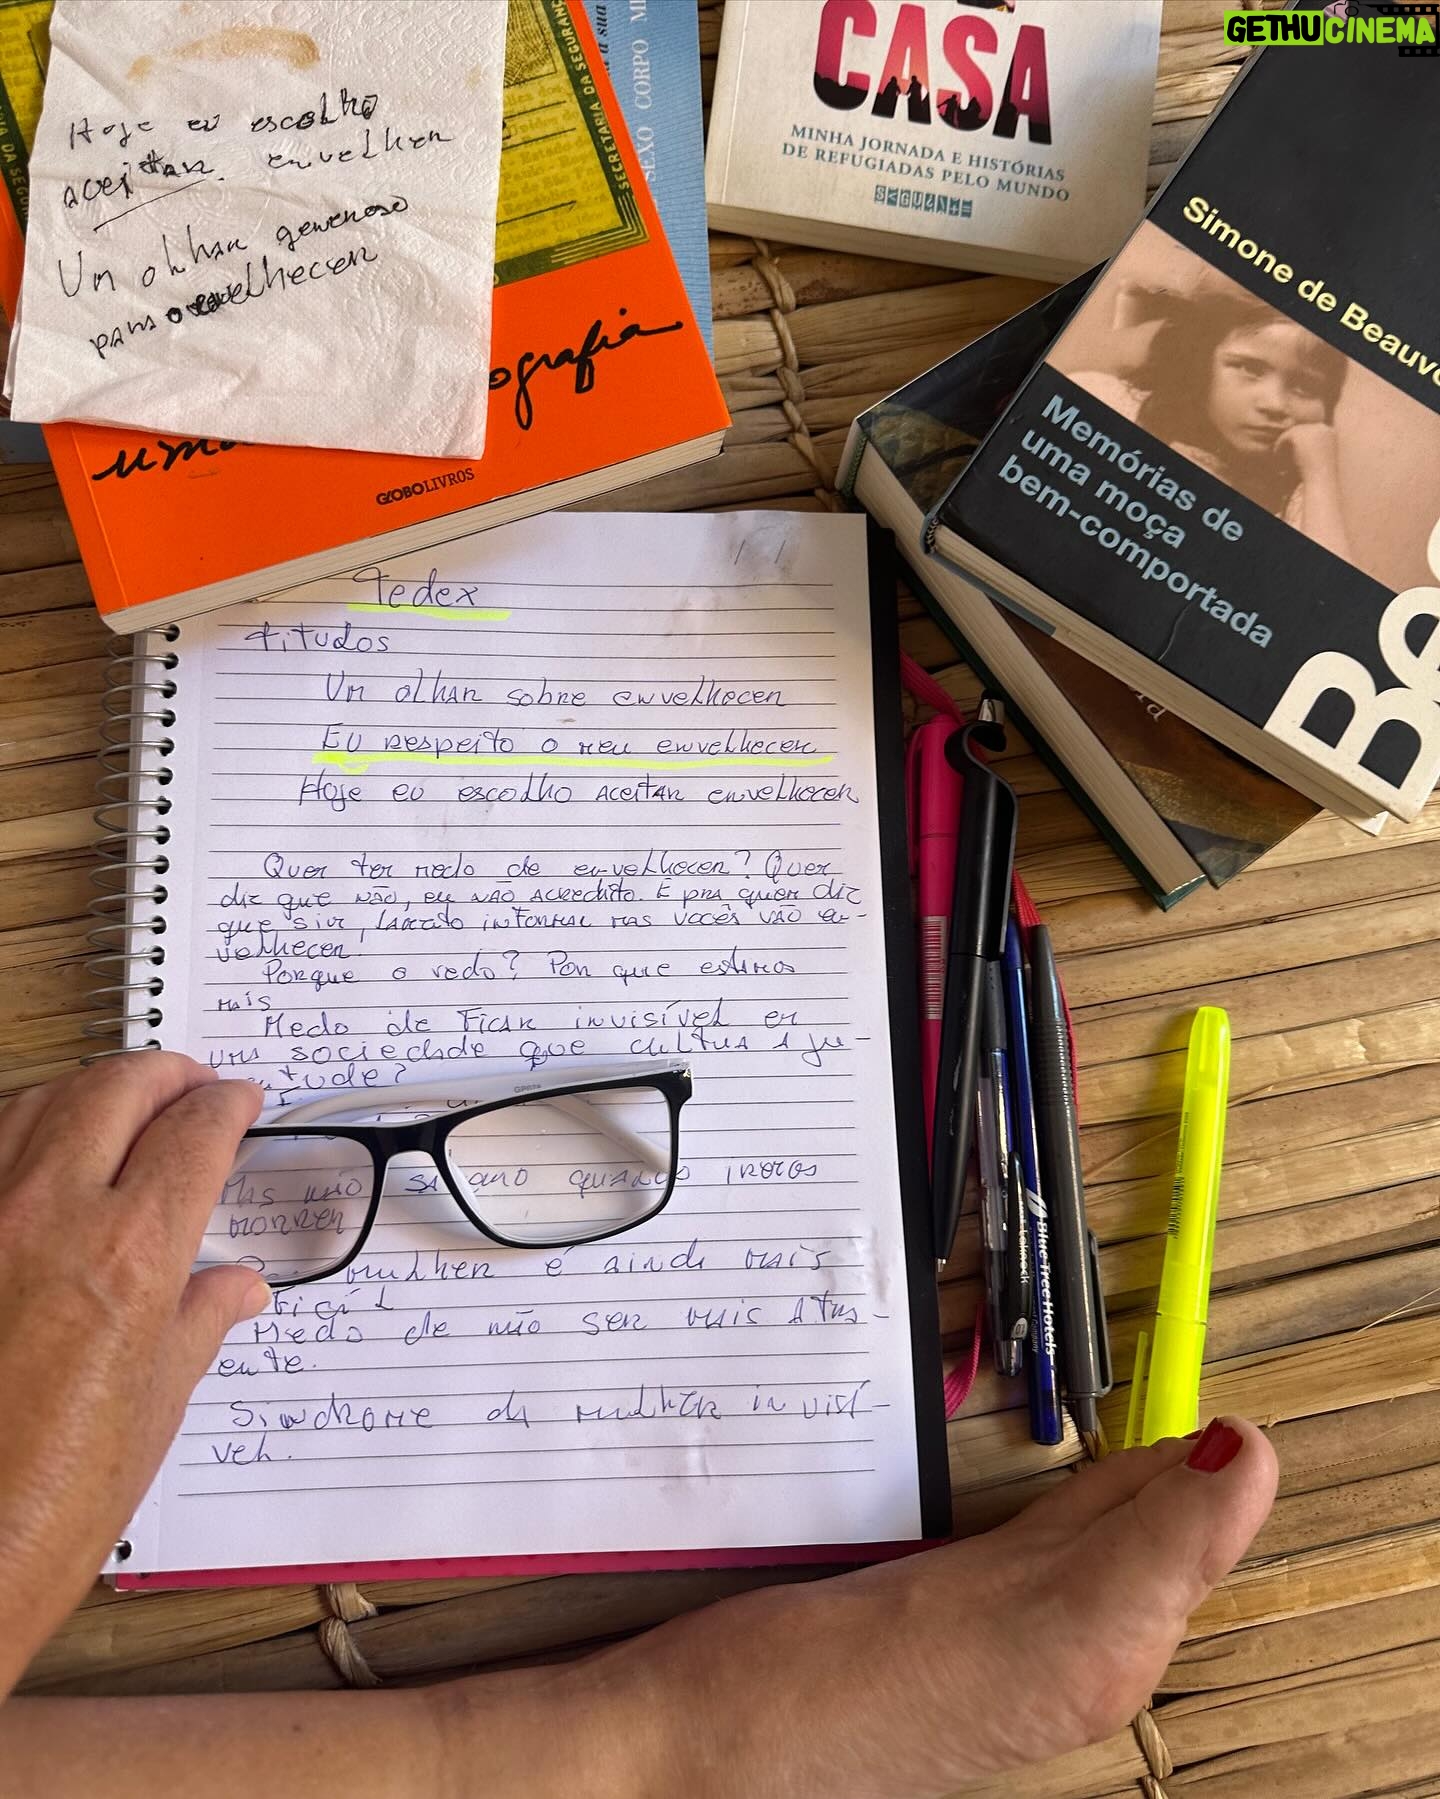 GETHUCINEMA
Hoje eu escolho
aceitar envelhecer
Um olhar generoso
para o envelhecer
SECRETARIA DA SEGURANÇ
SEXO CORPO
uma
ografia
GLOBOLIVROS
CASA
MINHA JORNADA E HISTÓRIAS
DE REFUGIADAS PELO MUNDO
Simone de Beauvo
Memórias de
uma moça
bem-comportada
Be
Tedex
títulos
Um olhar sobre envelhecer
Eu respeito o meu envelhecer
Hoje eu escolho aceitar envelhecer
Quer ter medo de envelhecer? Quer
diz que não, eu não acredito. E pra quem diz
que sim, informar mas vocês vão en-
velhecer.
Porque o medo? Por que estamos
mais
Medo de ficar invisível em
uma sociedade que cultua a ju-
ntude?
Mas não quando iremos
morrer
mulher é ainda mais
fícil
Medo de não ser mais atra-
ente.
Síndrome da mulher invisí-
vel.
Blue Tree Hotels